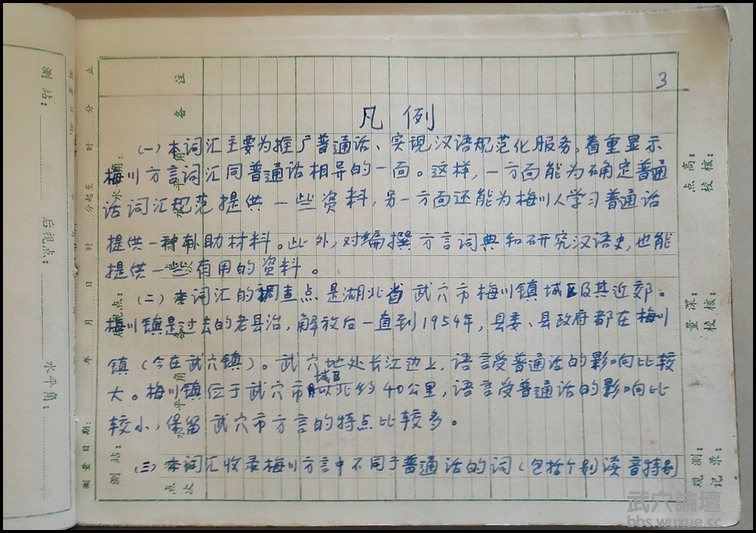 3
凡例
(一)本词汇主要为推广普通话、实现汉语规范化服务,着重显示
梅川方言词汇同普通话相异的一面。这样,一方面能为确定普通
话词汇规范提供一些资料,另一方面还能为梅川人学习普通话
提供一种补助材料。此外,对编撰方言词典和研究汉语史,也能
提供一些有用的资料。
(二)本词汇的调查点是湖北省武穴市梅川镇城区及其近郊。
梅川镇是过去的老县治,解放后一直到1954年,县委、县政府都在梅川
镇(今在武穴镇)。武穴地处长江边上,语言受普通话的影响比较
大。梅川镇位于武穴市城区以北约40公里,语言受普通话的影响比
较小,保留武穴市方言的特点比较多。
(三)本词汇收录梅川方言中不同于普通话的词(包括个别读音特别
测站:
后视点:
水平角:
测量日期:
年
月
日
时
分起至
时
分
止
测站:
点次
备
注
点高:
校核:
量深:
校核:
观测:
记录:
武穴論壇
bbs.wuxue.cc